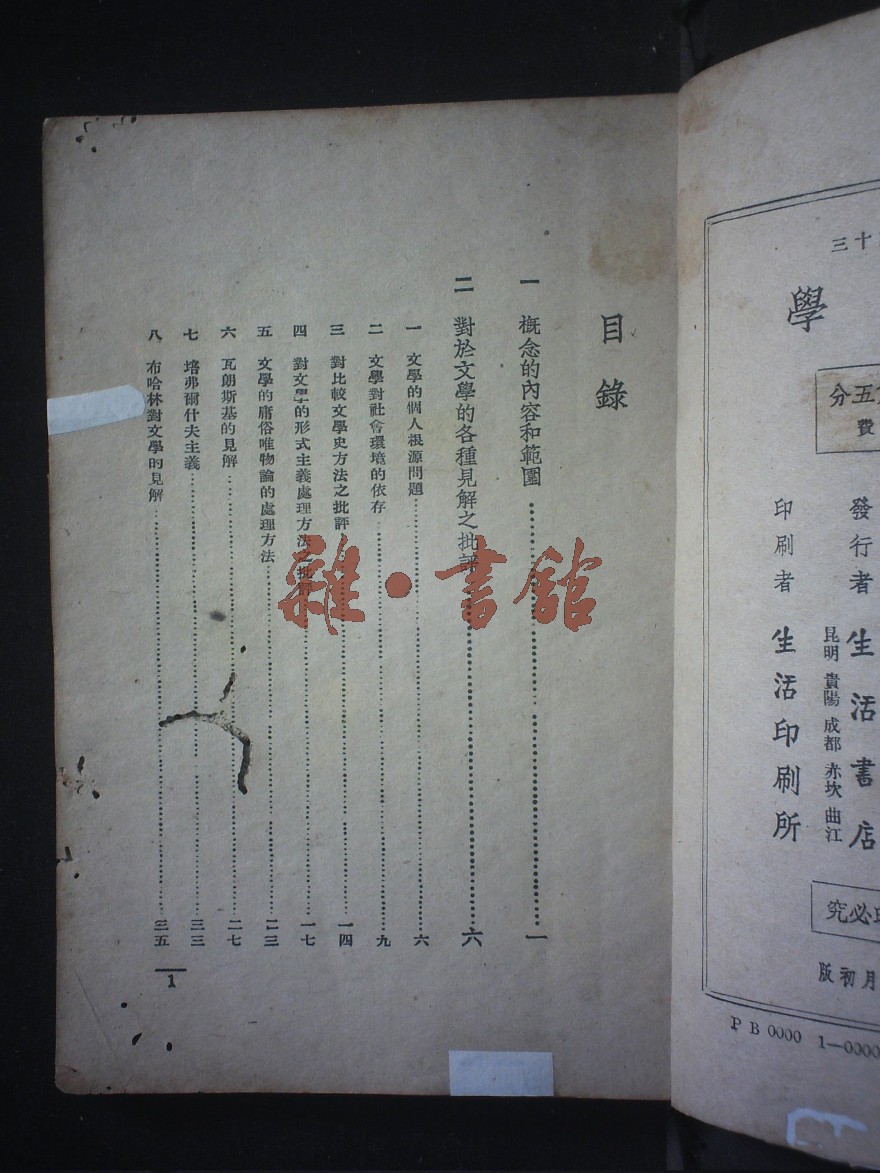 三十
學
五分
費
發行者 生活書店
昆明 貴陽 成都 赤坎 曲江
印刷者 生活印刷所
必究
月初版
P B 0000 1—0000
目錄
一 概念的內容和範圍 一
二 對於文學的各種見解之批評 六
一 文學的個人根源問題 六
二 文學對社會環境的依存 九
三 對比較文學史方法之批評 一四
四 對文學的形式主義處理方法之批評 一七
五 文學的庸俗唯物論的處理方法 二三
六 瓦朗斯基的見解 二七
七 培弗爾什夫主義 三三
八 布哈林對文學的見解 三五
1
雜·書館